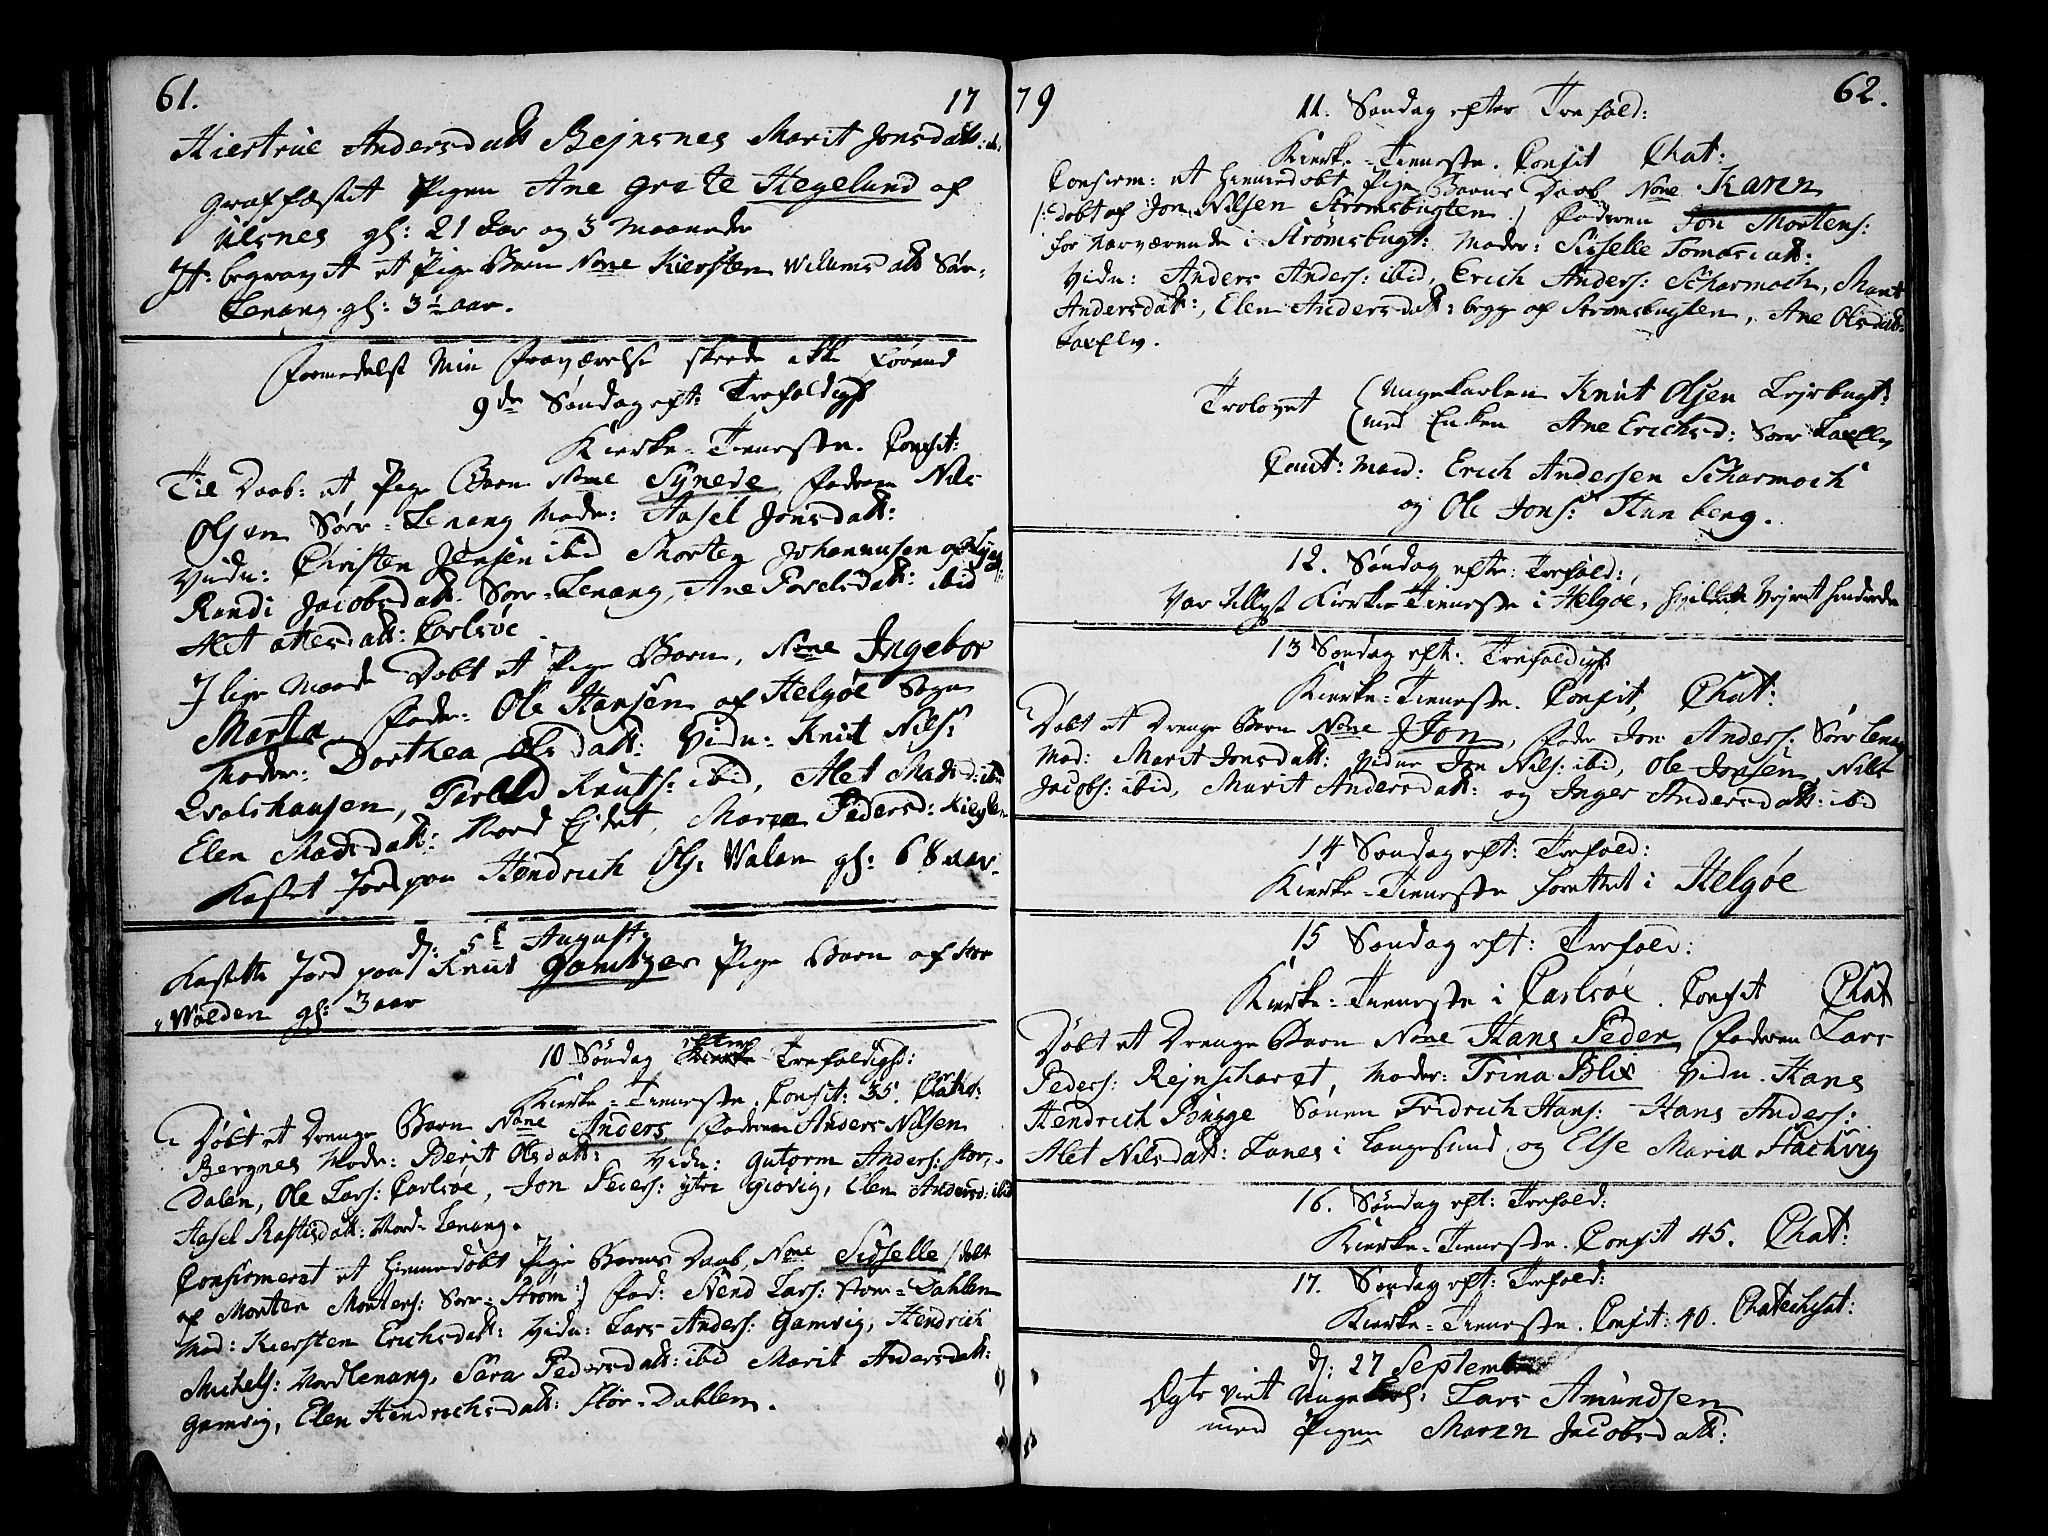 61. 17
Kiertrue Andersdatt Bejnsnes Marit Jonsdatt:
graffæstet Pigen Ane Grete Hegelund af
Ulsnes gl: 21 Aar og 3 Maaneder
It: begravet et Pige Barn None Kiersten Willumsdatt Sør-
Lenang gl: 3½ aar.
Formedelst Min Fraværelse skeede ikke förend
9de Søndag eft: Trefoldigh
Kierke-Tieneste. Confit:
Til Daab: et Pige Barn None Syneve, Faderen Nils
Olsen Sørr-Lenang Mod: Aasel Jonsdatt:
Vidn: Christen Jensen ibid Morten Johannesen
Randi Jacobsdatt Sørr-Lenang, Ane Povelsdatt: ibid
Alet Ottersdatt: Carlsøe
I lige Maade Døbt et Pige Barn, None Ingebor
Marta, Fader: Ole Hansen af Helgøe Sogn
Moder: Dorthea Olsdatt: Vidn: Knut Nils:
Qvalshausen, Knuts: ibid, Alet Madsd: ibid
Elen Madsdatt: Nord Ejdet, Maren Pedersd:
Kastet Jord paa Hendrich Ols: Walan gl: 68 aar.
d: 5t August:
Kastette Jord paa Knut Gamitzes Pige Barn af Stor
Walden gl: 3 aar
10 Søndag efter Trefoldighd:
Kierke-Tieneste. Confit: 35. Chate:
Døbt et Drenge Barn None Anders, Faderen Anders Nilsen
Bergnes Moder: Berit Olsdatt: Vidn: Gutorm Anders: Stor-
Dalen, Ole Lars: Carlsøe, Jon Peders: ytre Giøvig, Elen Andersd: ibid
Aasel Rastisdatt: Nord-Lenang.
Confirmeret et Hiemmedøbt Pige Barns Daab, None Sidselle (døbt
af Morten Mortens: Sørr-Strøm:) Fad: Svend Lars: Stor-Dahlen
Mod: Kiersten Erichsdatt: Vidn: Lars Anders: Gamvig, Hendrich
Michels: Nordlenang, Sara Pedersdatt: ibid Marit Andersdatt:
Gamvig, Elen Hendrichsdatt: Stor-Dahlen.
79 62.
11. Søndag efter Trefold:
Kierke-Tieneste. Confit Chat:
Confirm: et Hiemmedøbt Pige Barns Daab None Karen
/: døbt af Jon Nilsen Strømsbugten :/ Faderen Jon Mortens:
for nærværende i Strømsbugt: Moder: Sisselle Tomasdatt:
Vidn: Anders Anders: ibid, Erich Anders: Scharmoch, Marit
Andersdatt:, Elen Andersdatt: begge af Strømsbugten, Ane Olsdatt:
Laxelv.
Trolovet (Ungekarlen Knut Olsen Lejrbugt:
(med Enken Ane Erichsd: Sørr Laxelv
Caut: Mænd: Erich Andersen Scharmoch
og Ole Jons: Stanberg.
12. Søndag eftr: Trefold:
Var tillyst Kierke-Tieneste i Helgøe, hvilket Vejret hindrede
13 Søndag eft: Trefoldigh
Kierke-Tieneste. Confit, Chat:
Døbt et Drenge Barn None Jon, Fader Jon Anders: Sørr Lenang
Mod: Marit Jonsdatt: Vidner Jon Nils: ibid, Ole Jonsen, Nils
Jacobs: ibid, Marit Andersdatt: og Inger Andersdatt: ibid
14 Søndag eft: Trefold:
Kierke-Tieneste forrettet i Helgøe
15 Søndag eft: Trefold:
Kierke-Tieneste i Carlsøe. Confit Chat
Døbt et Drenge Barn None Hans Peder, Faderen Lars
Peders: Rejnscharet, Moder: Trina Blix Vidn. Hans
Hendrich Bugge Sønen Fridrich Hans: Hans Anders:
Alet Nilsdatt: Lanes i Langesund og Else Maria Hachvig
16. Søndag eft: Trefold:
Kierke-Tieneste. Confit 45. Chat:
17. Søndag eft: Trefold:
Kierke-Tieneste. Confit: 40. Chatechisat:
d: 27 Septembr
Ægte viet Ungekarl: Lars Amundsen
med Pigen Maren Jacobsdatt: